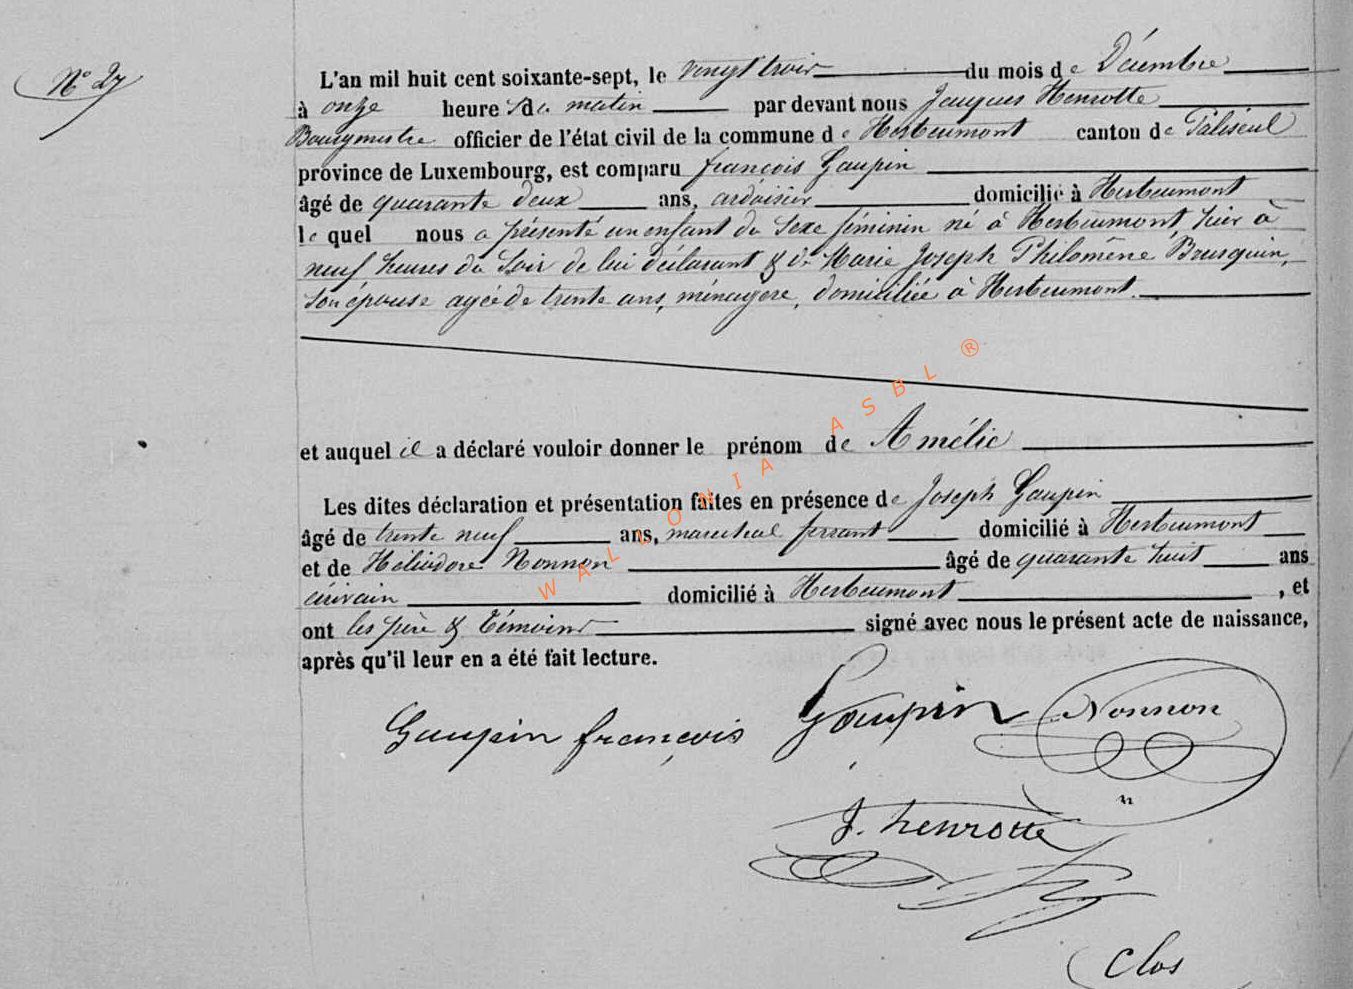 N° 27
L'an mil huit cent soixante-sept, le vingt trois du mois de Décembre
à onze heures du matin par devant nous Jacques Henrotte
Bourgmestre officier de l'état civil de la commune de Herbeumont canton de Paliseul
province de Luxembourg, est comparu françois Gaupin
âgé de quarante deux ans, ardoisier domicilié à Herbeumont
lequel nous a présenté un enfant du sexe féminin né à Herbeumont, hier à
neuf heures du soir de lui déclarant & de Marie Joseph Philomène Bousquin,
son épouse agée de trente ans, ménagère, domiciliée à Herbeumont.
et auquel il a déclaré vouloir donner le prénom de Amélie
Les dites déclaration et présentation faites en présence de Joseph Gaupin
âgé de trente neuf ans, marechal ferrant domicilié à Herbeumont
et de Héliodore Nonnon âgé de quarante huit ans
écrivain domicilié à Herbeumont , et
ont les père & témoins signé avec nous le présent acte de naissance,
après qu'il leur en a été fait lecture.
Gaupin françois Gaupin Nonnon
J. henrotte
Clos
WALLONIA ASBL ®